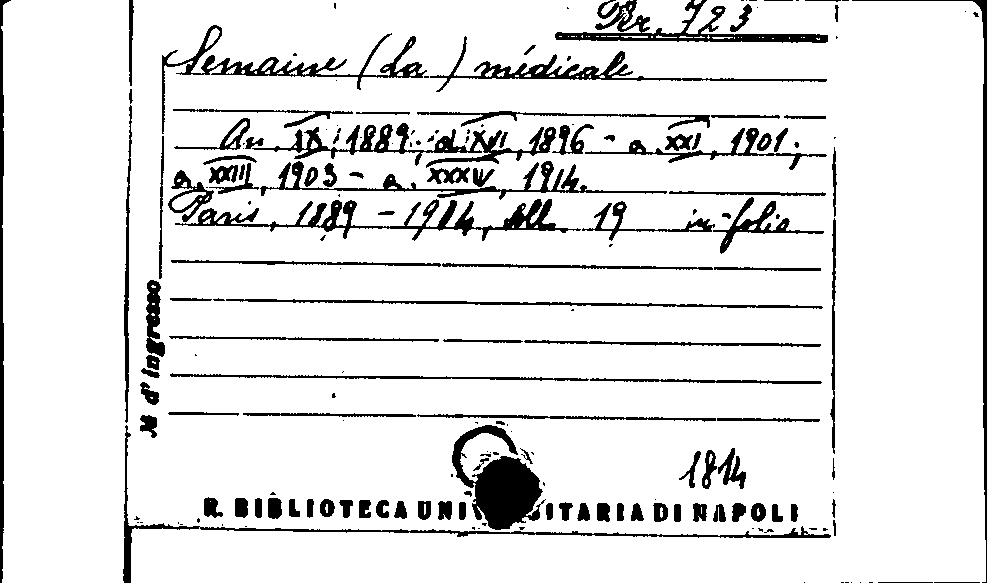 Rr. 723
Semaine (La) médicale.
An. IX, 1889; a. XVI, 1896 - a. XXI, 1901;
a. XXIII, 1903 - a. XXXIV, 1914.
Paris, 1889 - 1914, voll. 19 in-folio
N d'ingresso
1814
R. BIBLIOTECA UNI SITARIA DI NAPOLI